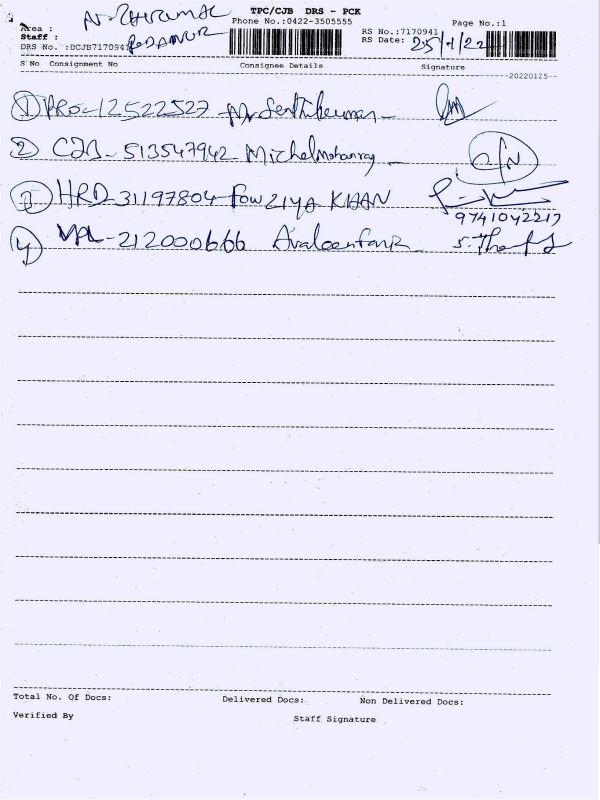 TPC/CJB DRS - PCK
Phone No.:0422-3505555 Page No.:1
Area :
Staff : PODANUR
DRS No. :DCJB7170941
RS No.:7170941
RS Date: 25/1/22
S No Consignment No Consignee Details Signature
20220125
① PRO-12522527 Mr Senthilkumar
② CJB-513547942 Michelmohanraj
③ HRD-31197804 Fowziya KHAN
9741042217
④ 212000666
Total No. Of Docs: Delivered Docs: Non Delivered Docs:
Verified By Staff Signature